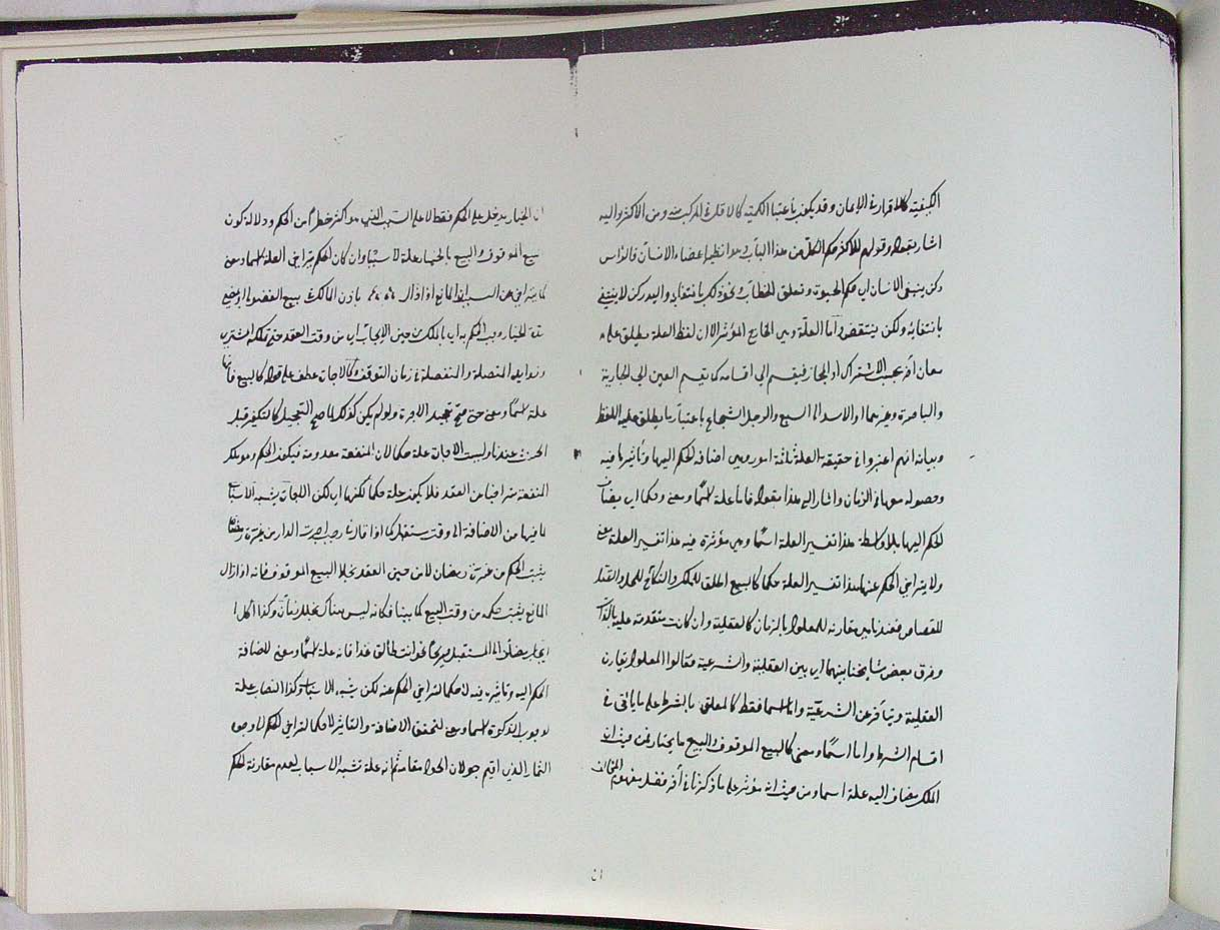 الكيفية كالاقرار في الايمان وقد يكون باعتبار الكمية كالاقل في المركب منه ومن الاكثر واليه
اشار بقوله وقولهم للاكثر حكم الكل من هذا الباب في هوا نظيرا عضاء الانسان فالراس
ركن ينتفي الانسان اي حكم الحيوة وتعلق الخطاب ونحو ذلك بانتفائه واليد ركن لا ينتفي
بانتفائه ولكن ينتقض واما العلة وهي الخارج المؤثر الا ان لفظ العلة يطلق على
معان اخر بحسب الاشتراك او المجاز فينقسم الى اقسامه كما يقسم العين الى الجارية
والباصرة وغيرهما او الاسد الى السبع والرجل الشجاع باعتبار ما يطلق عليه اللفظ
وبيانه انهم اعتبروا في حقيقة العلة ثلثة امور وهي اضافة الحكم اليها وتأثيرها فيه
وحصوله معها في الزمان واشار الى هذا بقوله فاما علة اسما ومعنى وحكما اي يضاف
الحكم اليها بلا واسطة هذا تفسير العلة اسما وهي مؤثرة فيه هذا تفسير العلة معنى
ولا يتراخى الحكم عنها هذا تفسير العلة حكما كالبيع المطلق للملك والنكاح للحل والقتل
للقصاص فعندنا هي مقارنة للمعلول بالزمان كالعقلية وان كانت متقدمة عليه بالذات
وفرق بعض مشايخنا بينهما اي بين العقلية والشرعية فقالوا المعلول يقارن
العقلية ويتأخر عن الشرعية واما اسما فقط كالمعلق بالشرط على ما يأتي في
اقسام الشرط واما اسما ومعنى كالبيع الموقوف والبيع بالخيار فمن حيث ان
الملك يضاف اليه علة اسما ومن حيث انه مؤثر على ما ذكرنا في آخر فصل مفهوم المخالفة
ان الخيار يدخل على الحكم فقط لا على السبب الذي هو اكثر خطرا من الحكم ودلالة كون
بيع الموقوف والبيع بالخيار علة لا سببا وان كان الحكم يتراخى العلة اسما ومعنى
كما يتراخى عن السبب ان المانع اذا زال باذن المالك في بيع الفضولي او بمضي
مدة الخيار وجب الحكم به اي بالملك من حين الايجاب اي من وقت العقد حتى تملكه المشتري
وزوايده المتصلة والمنفصلة في زمان التوقف وكالاجارة عطف على قوله كالبيع فانها
علة اسما ومعنى حتى صح تعجيل الاجرة ولو لم يكن كذلك لما صح التعجيل كالتكفير قبل
الحنث عندنا وليست الاجارة علة حكما لان المنفعة معدومة فيكون الحكم وهو ملك
المنفعة متراخيا عن العقد فلا يكون علة حكما لكنها اي لكن الاجارة يشبه الاسباب
لما فيها من الاضافة الى وقت مستقبل كما اذا قال في رجب اجرت الدار من غرة رمضان
يثبت الحكم من غرة رمضان لا من حين العقد بخلاف البيع الموقوف فانه اذا زال
المانع يثبت حكمه من وقت البيع كما بينا فكانه ليس هناك تخلل زمان وكذا كل
ايجاب مضاف الى المستقبل صريحا نحو انت طالق غدا فانه علة اسما ومعنى لاضافة
الحكم اليه وتاثيره فيه لا حكما لتراخي الحكم عنه لكن يشبه الاسباب وكذا النصاب علة
لوجوب الزكوة اسما ومعنى لتحقق الاضافة والتاثير لا حكما لتراخي الحكم الى وجود
النماء الذي اقيم حولان الحول مقامه ثم انه علة تشبه الاسباب لعدم مقارنة الحكم